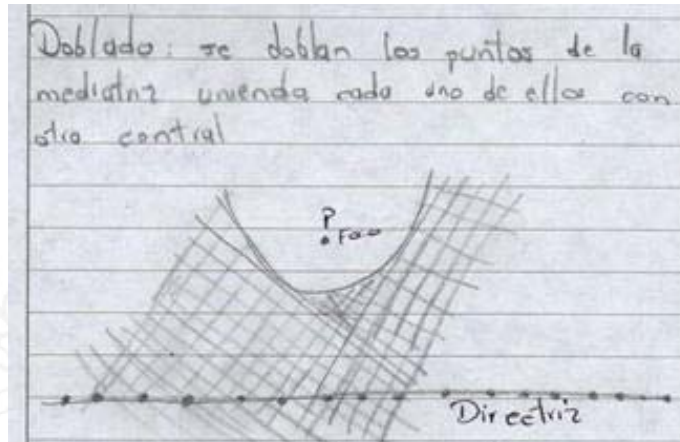 Doblado: se doblan los puntos de la
mediatriz uniendo cada uno de ellos con
otro central
P
Foco
Directriz